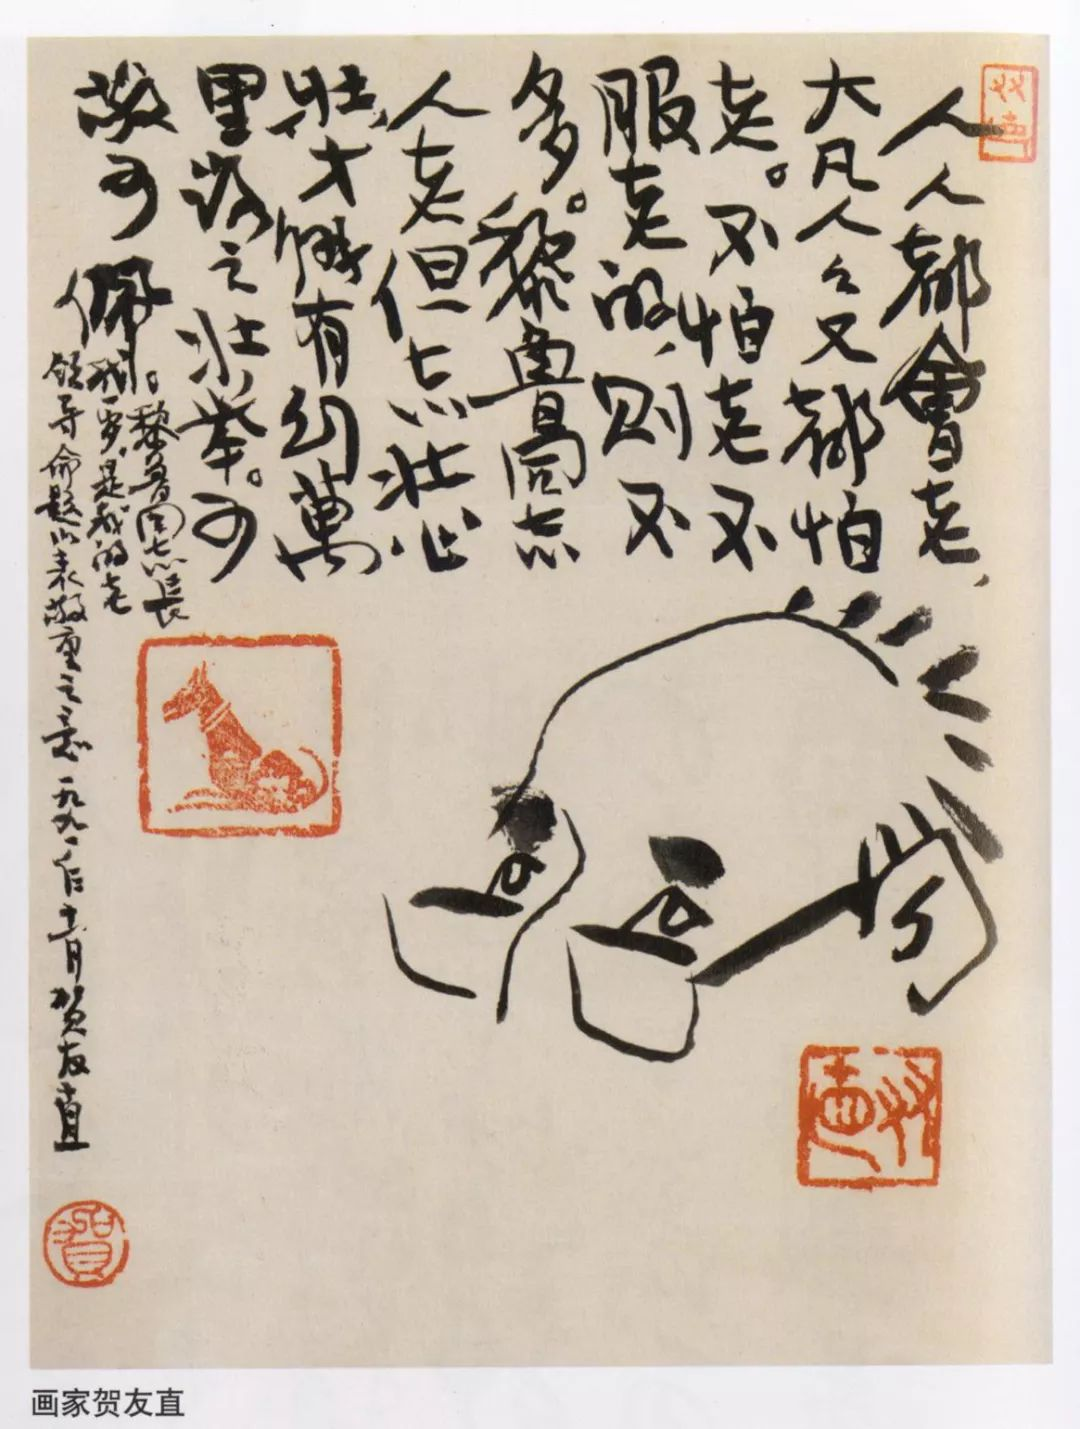 人人都會老，
大凡人々又都怕
老。不怕老不
服老的，则不
多。黎魯同志
人老但志壮心
壮，才能有行萬
里路之壮举。可
敬可佩。
黎魯同志長
我一岁，是我的老
领导命题以表敬重之意一九九一年十一月贺友直
賀
画家贺友直